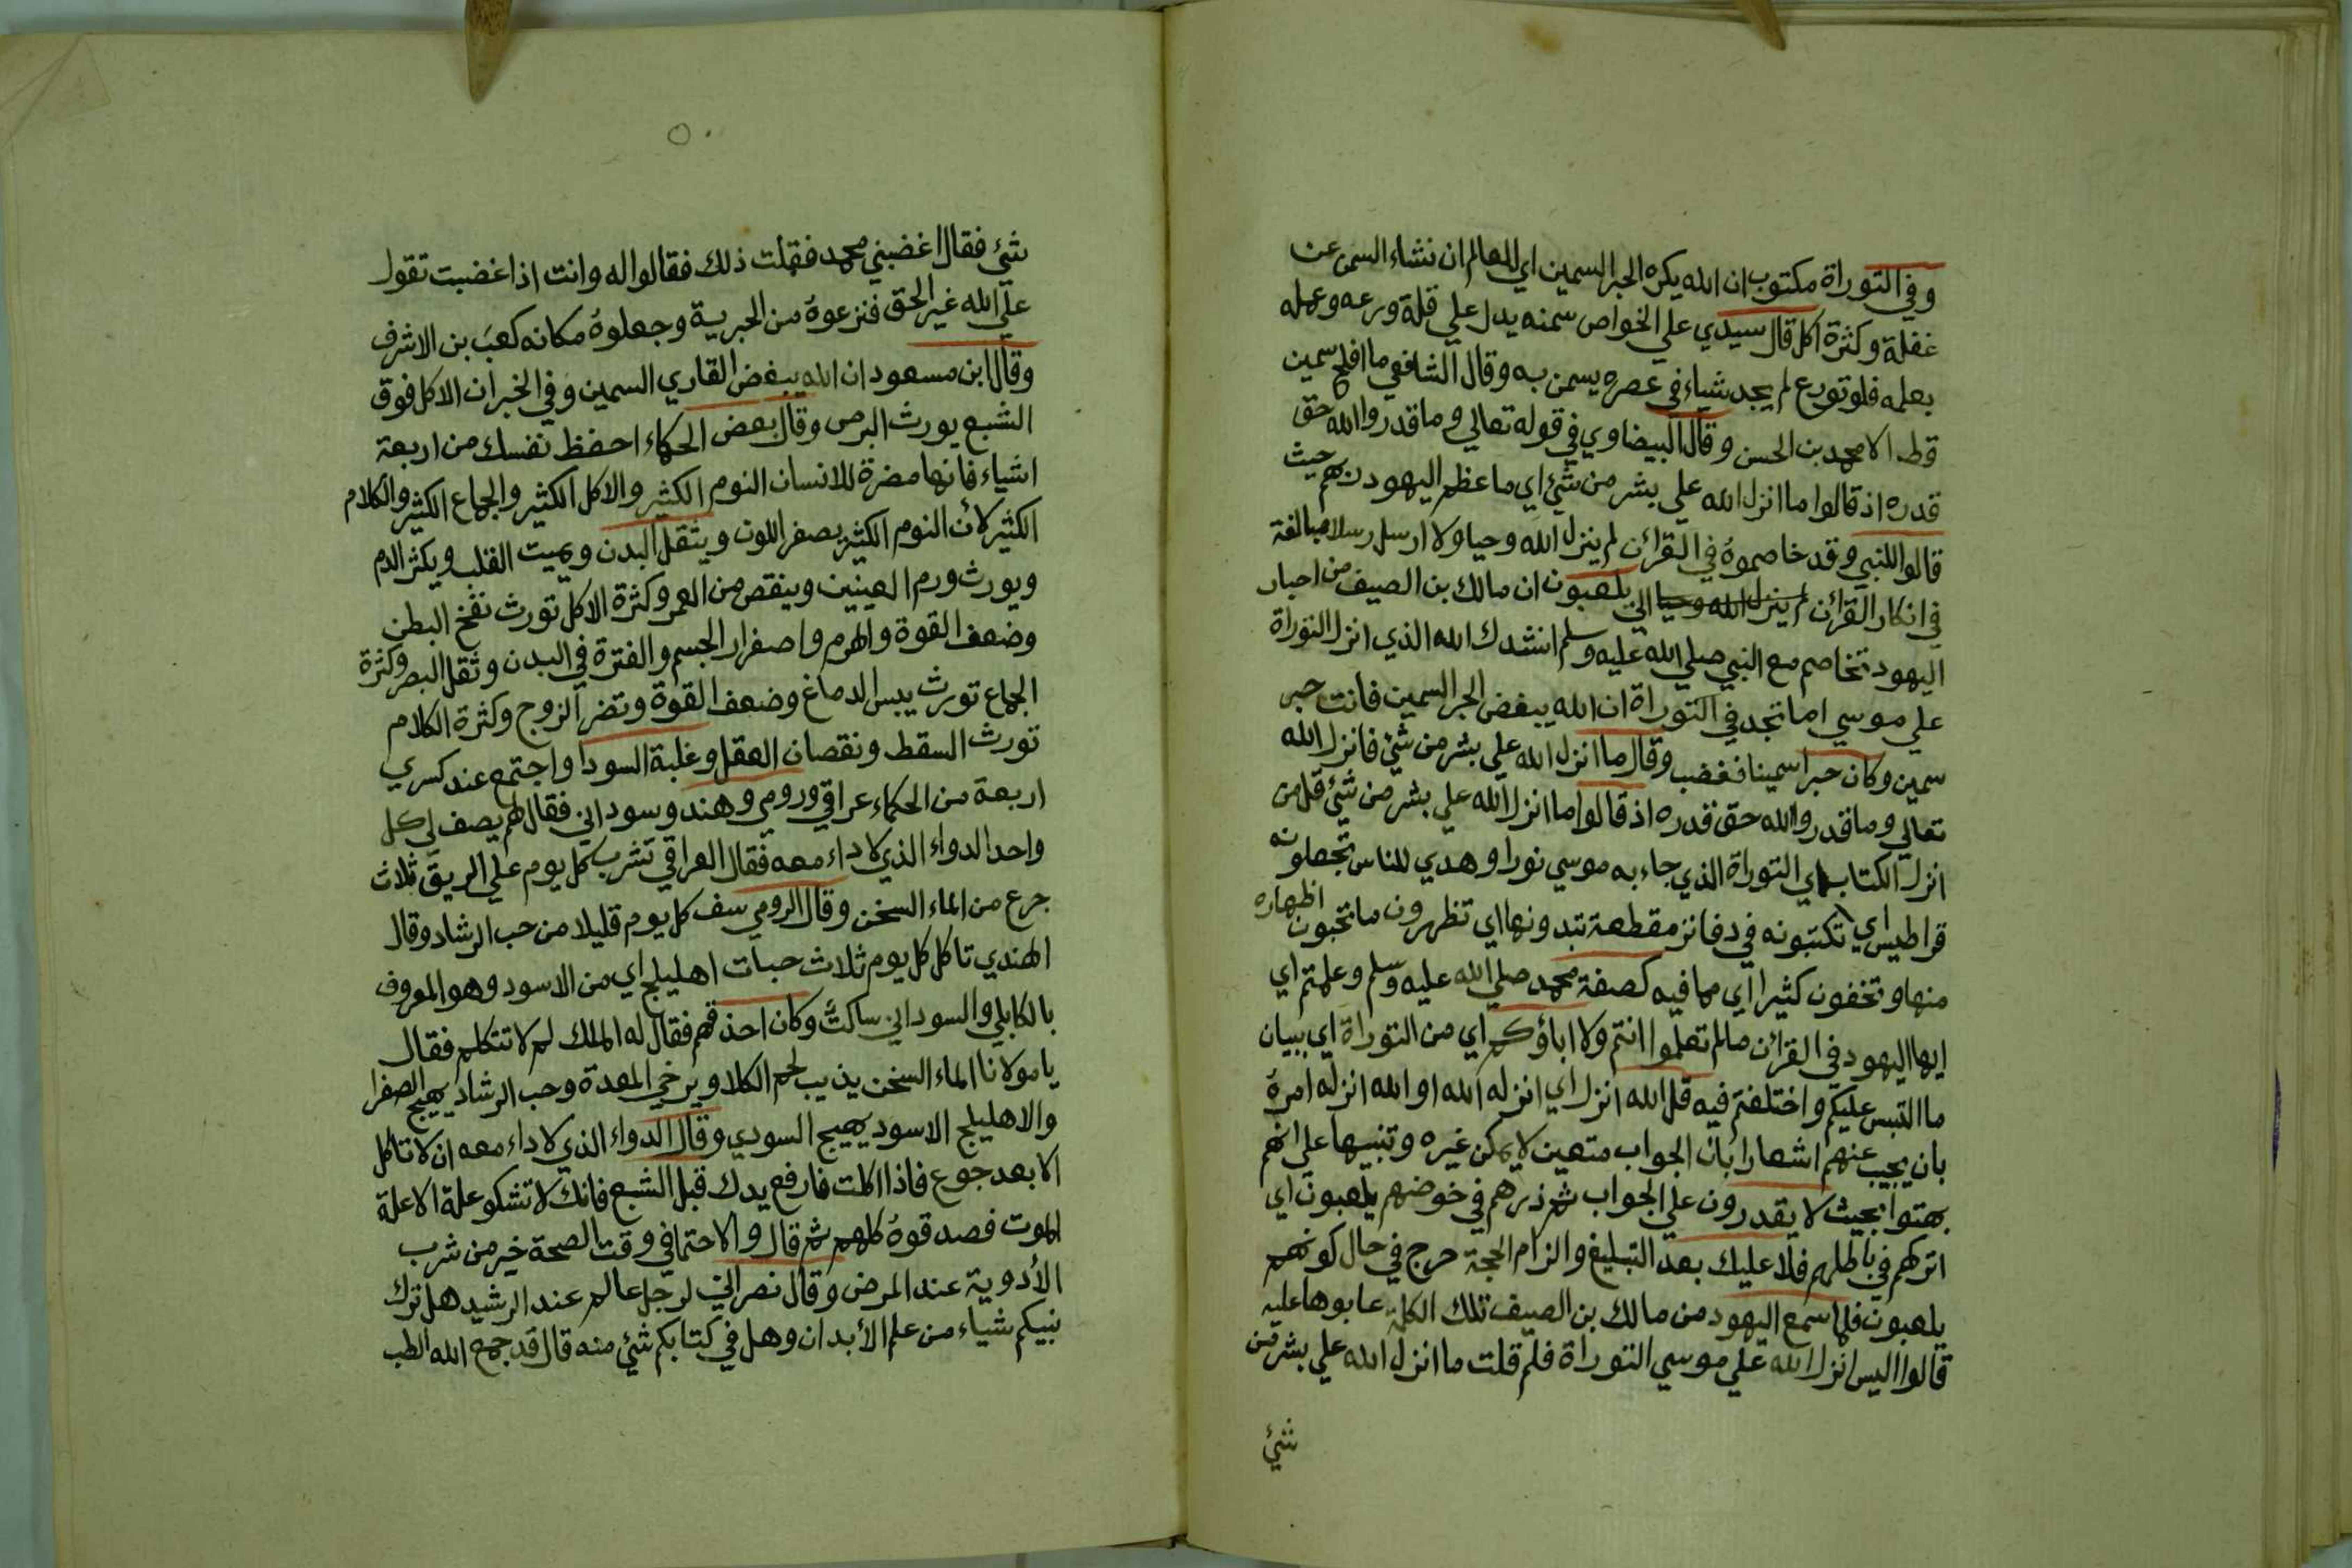 وفي التوراة مكتوب ان الله يكره الحبر السمين اي العالم ان نشاء السمن عن
غفلة وكثرة اكل قال سيدي علي الخواص سمنه يدل علي قلة ورعه وعمله
بعلمه فلو تورع لم يجد شياء في عصره يسمن به وقال الشافعي ما افلح سمين
قط الا محمد بن الحسن وقال البيضاوي في قوله تعالي وما قدروا الله حق
قدره اذ قالوا ما انزل الله علي بشر من شئ اي ما عظم اليهود ربهم حيث
قالوا للنبي وقد خاصموه في القرائن لم ينزل الله وحيا ولا ارسل رسلا مبالغة
في انكار القرائن لم ينزل الله وحيا الي يلعبون ان مالك بن الصيف من احبار
اليهود تخاصم مع النبي صلي الله عليه وسلم انشدك الله الذي انزل التوراة
علي موسي اما تجد في التوراة ان الله يبغض الحبر السمين فانت حبر
سمين وكان حبرا سمينا فغضب وقال ما انزل الله علي بشر من شئ فانزل الله
تعالي وما قدروا الله حق قدره اذ قالوا ما انزل الله علي بشر من شئ قل من
انزل الكتاب اي التوراة الذي جاء به موسي نورا وهدي للناس تجعلونه
قراطيس اي تكتبونه في دفاتر مقطعة تبدونها اي تظهرون ما تحبون اظهاره
منها وتخفون كثيرا اي مما فيه كصفة محمد صلي الله عليه وسلم وعلمتم اي
ايها اليهود في القرائن مالم تعلموا انتم ولا اباؤكم اي من التوراة اي ببيان
ما التبس عليكم واختلفتم فيه قل الله انزل اي انزله الله او الله انزله امره
بان يجيب عنهم اشعارا بان الجواب متعين لا يمكن غيره وتنبيها علي انهم
بهتوا بحيث لا يقدرون علي الجواب ثم ذرهم في خوضهم يلعبون اي
اتركهم في باطلهم فلا عليك بعد التبليغ والزام الحجة حرج في حال كونهم
يلعبون فلما سمع اليهود من مالك بن الصيف تلك الكلمة عابوها عليه
قالوا اليس انزل الله علي موسي التوراة فلم قلت ما انزل الله علي بشر من
شئ
شئ فقال اغضبني محمد فقلت ذلك فقالوا له وانت اذا غضبت تقول
علي الله غير الحق فنزعوه من الحبرية وجعلوه مكانه كعب بن الاشرف
وقال ابن مسعود ان الله يبغض القاري السمين وفي الخبر ان الاكل فوق
الشبع يورث البرص وقال بعض الحكماء احفظ نفسك من اربعة
اشياء فانها مضرة للانسان النوم الكثير والاكل الكثير والجماع الكثير والكلام
الكثير لأن النوم الكثير يصفر اللون ويثقل البدن ويميت القلب ويكثر الدم
ويورث ورم العينين وينقص من العمر وكثرة الاكل تورث نفخ البطن
وضعف القوة والهرم واصفرار الجسم والفترة في البدن وثقل البصر وكثرة
الجماع تورث يبس الدماغ وضعف القوة وتضر الزوج وكثرة الكلام
تورث السقط ونقصان العقل وغلبة السودا واجتمع عند كسري
اربعة من الحكماء عراقي ورومي وهند وسوداني فقال لهم يصف لي كل
واحد الدواء الذي لا داء معه فقال العراقي تشرب كل يوم علي الريق ثلاث
جرع من الماء السخن وقال الرومي سف كل يوم قليلا من حب الرشاد وقال
الهندي تاكل كل يوم ثلاث حبات اهليلج اي من الاسود وهو المعروف
بالكابلي والسوداني ساكت وكان احذقهم فقال له الملك لم لا تتكلم فقال
يا مولانا الماء السخن يذيب لحم الكلا ويرخي المعدة وحب الرشاد يهيج الصفرا
والاهليلج الاسود يهيج السودي وقال الدواء الذي لا داء معه ان لا تاكل
الا بعد جوع فاذا اكلت فارفع يدك قبل الشبع فانك لا تشكو علة الا علة
الموت فصدقوه كلهم ثم قال والاحتما في وقت الصحة خير من شرب
الأدوية عند المرض وقال نصراني لرجل عالم عند الرشيد هل ترك
نبيكم شياء من علم الأبدان وهل في كتابكم شئ منه قال قد جمع الله الطب